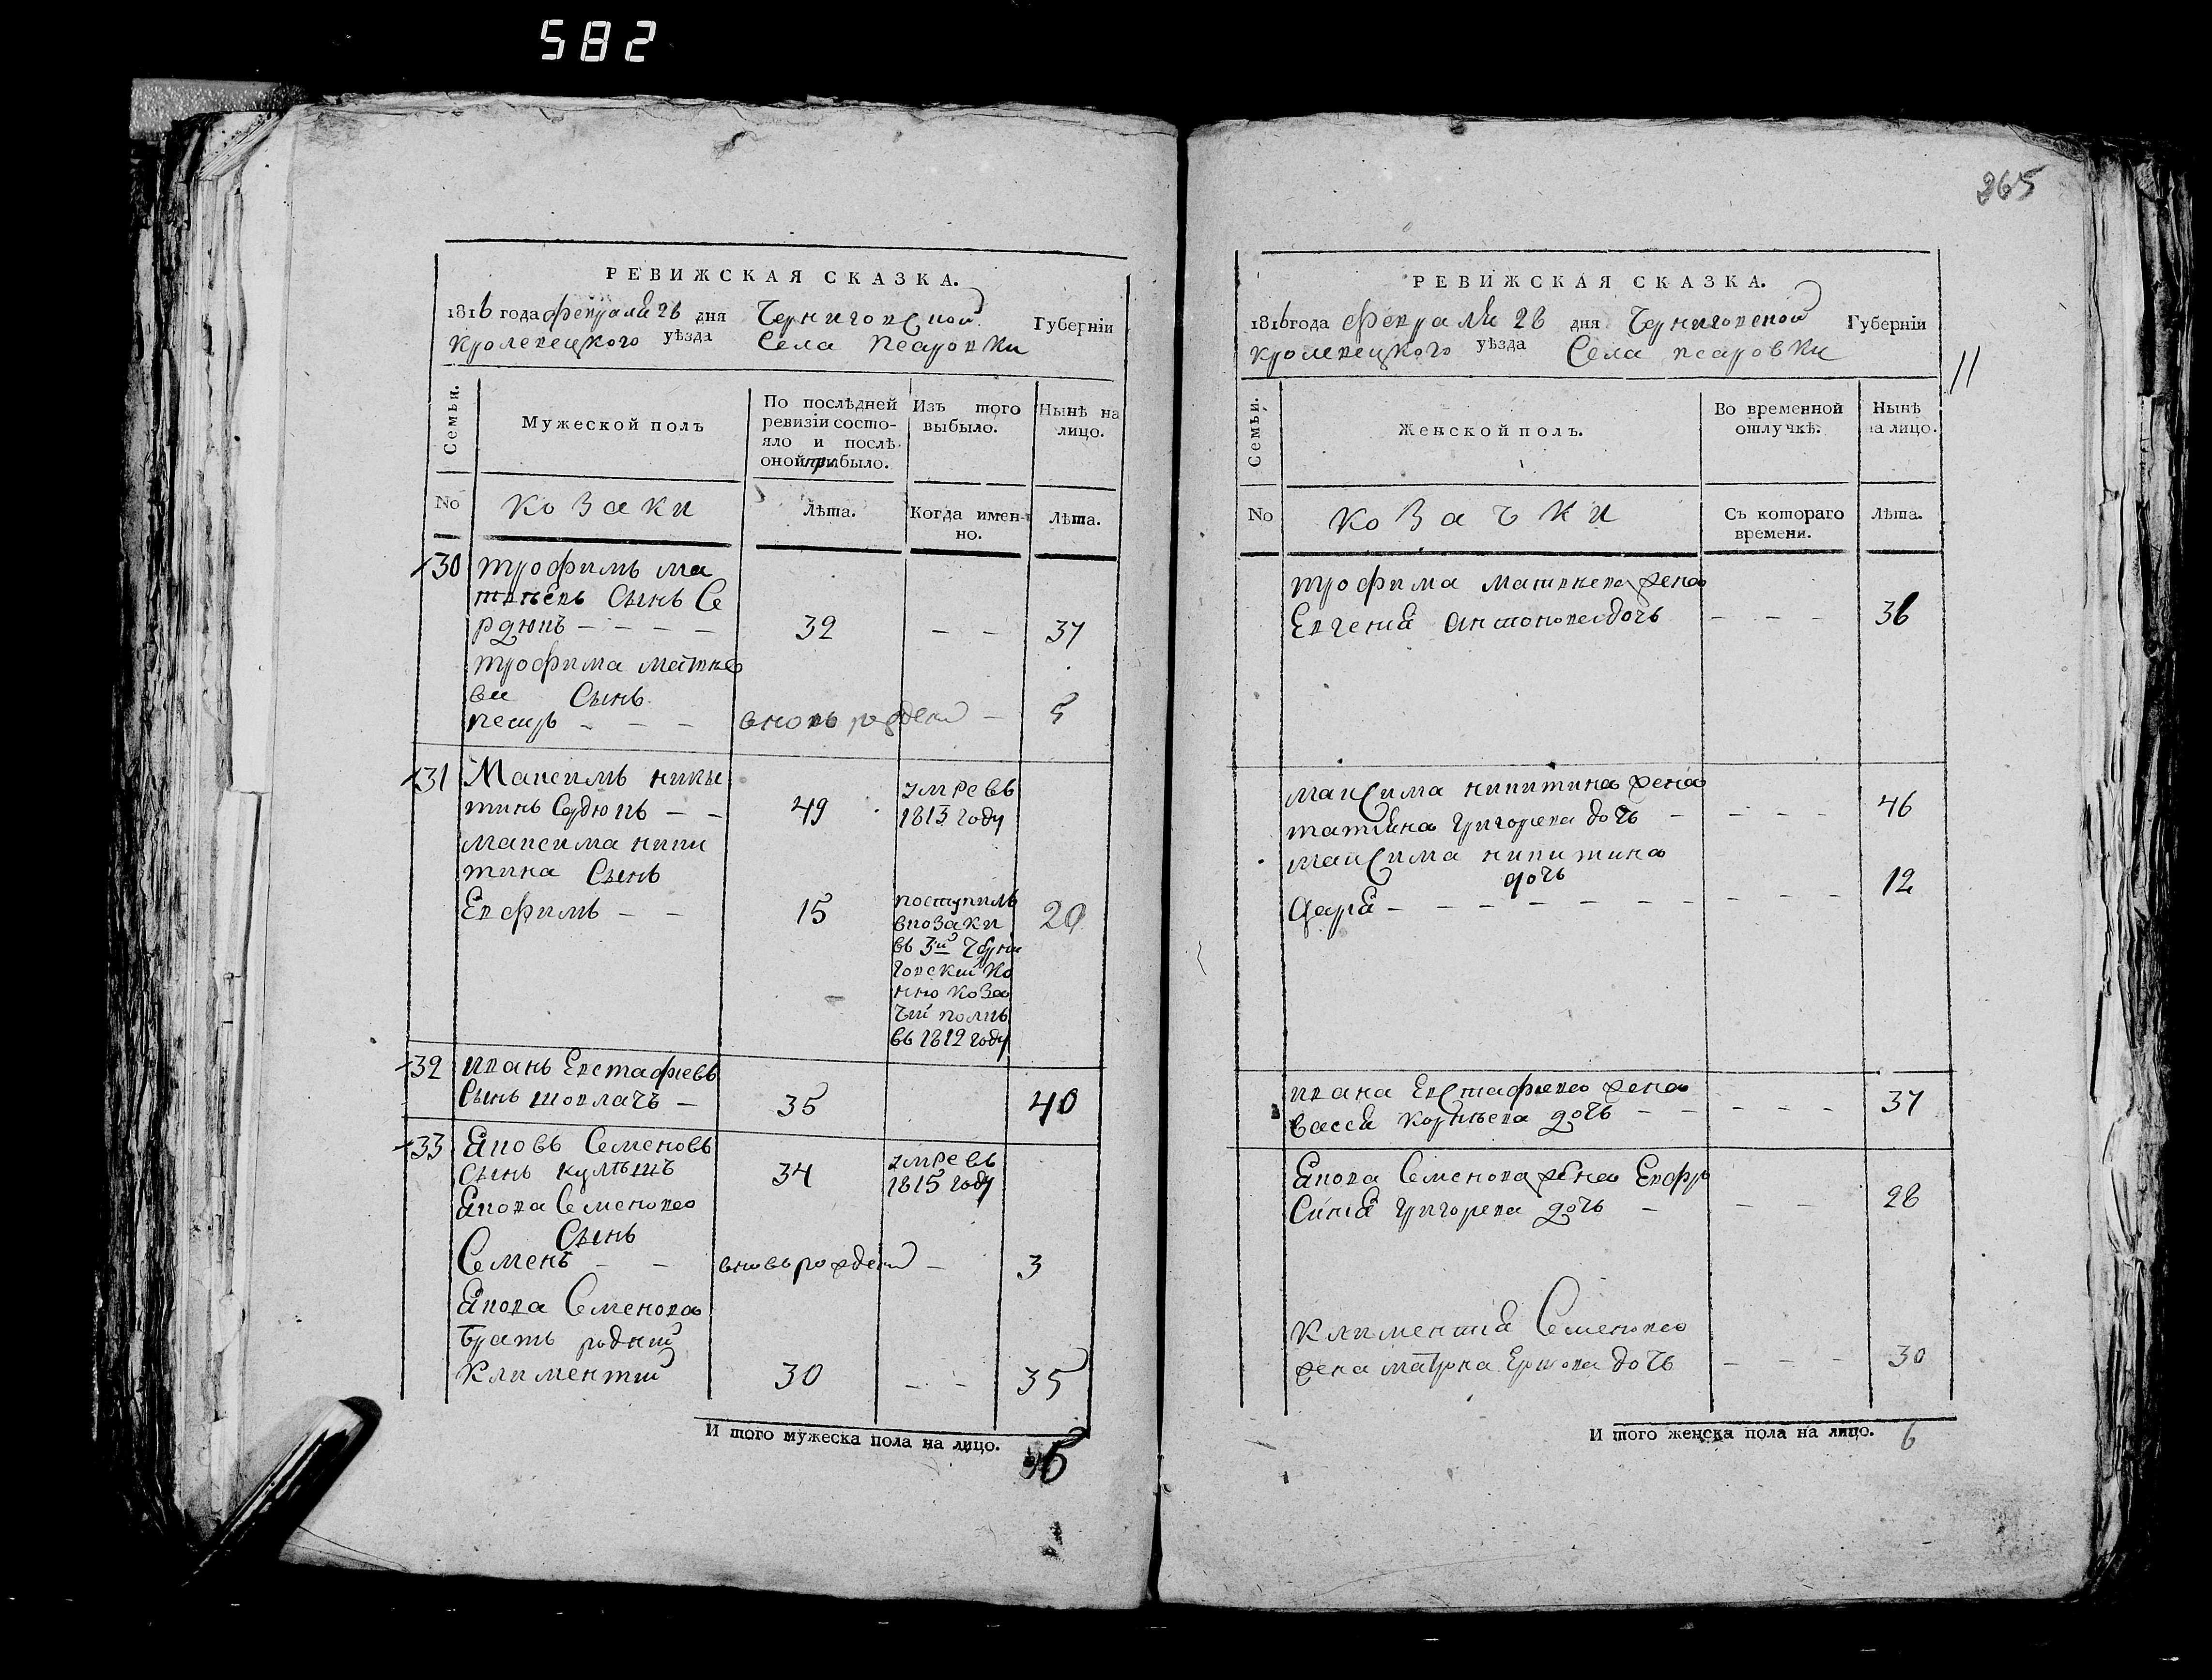 582
РЕВИЖСКАЯ СКАЗКА.
1816 года февраля 26 дня Черниговской Губерніи
Кролевецкого уѣзда Села Псаровки
Семьи.
Мужеской полъ
По послѣдней ревизіи состо-
яло и послѣ
оной прибыло.
Изъ того
выбыло.
Нынѣ на
лицо.
No
козаки
Лѣта.
Когда имен-
но.
Лѣта.
30 трофимъ ма
твѣевъ Сынъ Се
рдюкъ 32 37
трофима матве
ва Сынъ
петръ вновь рожденй 5
31 Максимъ никы
тинъ Сердюкъ 49 умре въ
1813 году
максима ники
тина Сынъ
Евфимъ 15 20
поступилъ
в козаки
въ 3й Черни
говский ко
нно коза
чий полкъ
въ 1812 году
32 иванъ Евстафиевъ
Сынъ шовлачъ 35 40
33 Яковъ Семеновъ
Сынъ кулѣшъ 34 умре въ
1815 году
Якова Семенова
Сынъ
Семенъ вновь рожденй 3
Якова Семенова
братъ родний
Климентий 30 35
И того мужеска пола на лицо. 6
865
РЕВИЖСКАЯ СКАЗКА.
1816 года февраля 26 дня Черниговской Губерніи
Кролевецкого уѣзда Села псаровки
11
Семьи.
Женской полъ.
Во временной
отлучкѣ.
Нынѣ
на лицо.
No
козачки
Съ котораго
времени.
Лѣта.
трофима матвеева жена
Евгения Антонова дочь 36
максима никитина жена
татияна григорева дочъ 46
максима никитина
дочь
Даря 12
ивана Евстафиева жена
васса корнѣева дочь 37
Якова Семенова жена Евфро
Синия григорева дочь 28
климентия Семенова
жена матрона дочъ 30
И того женска пола на лицо. 6